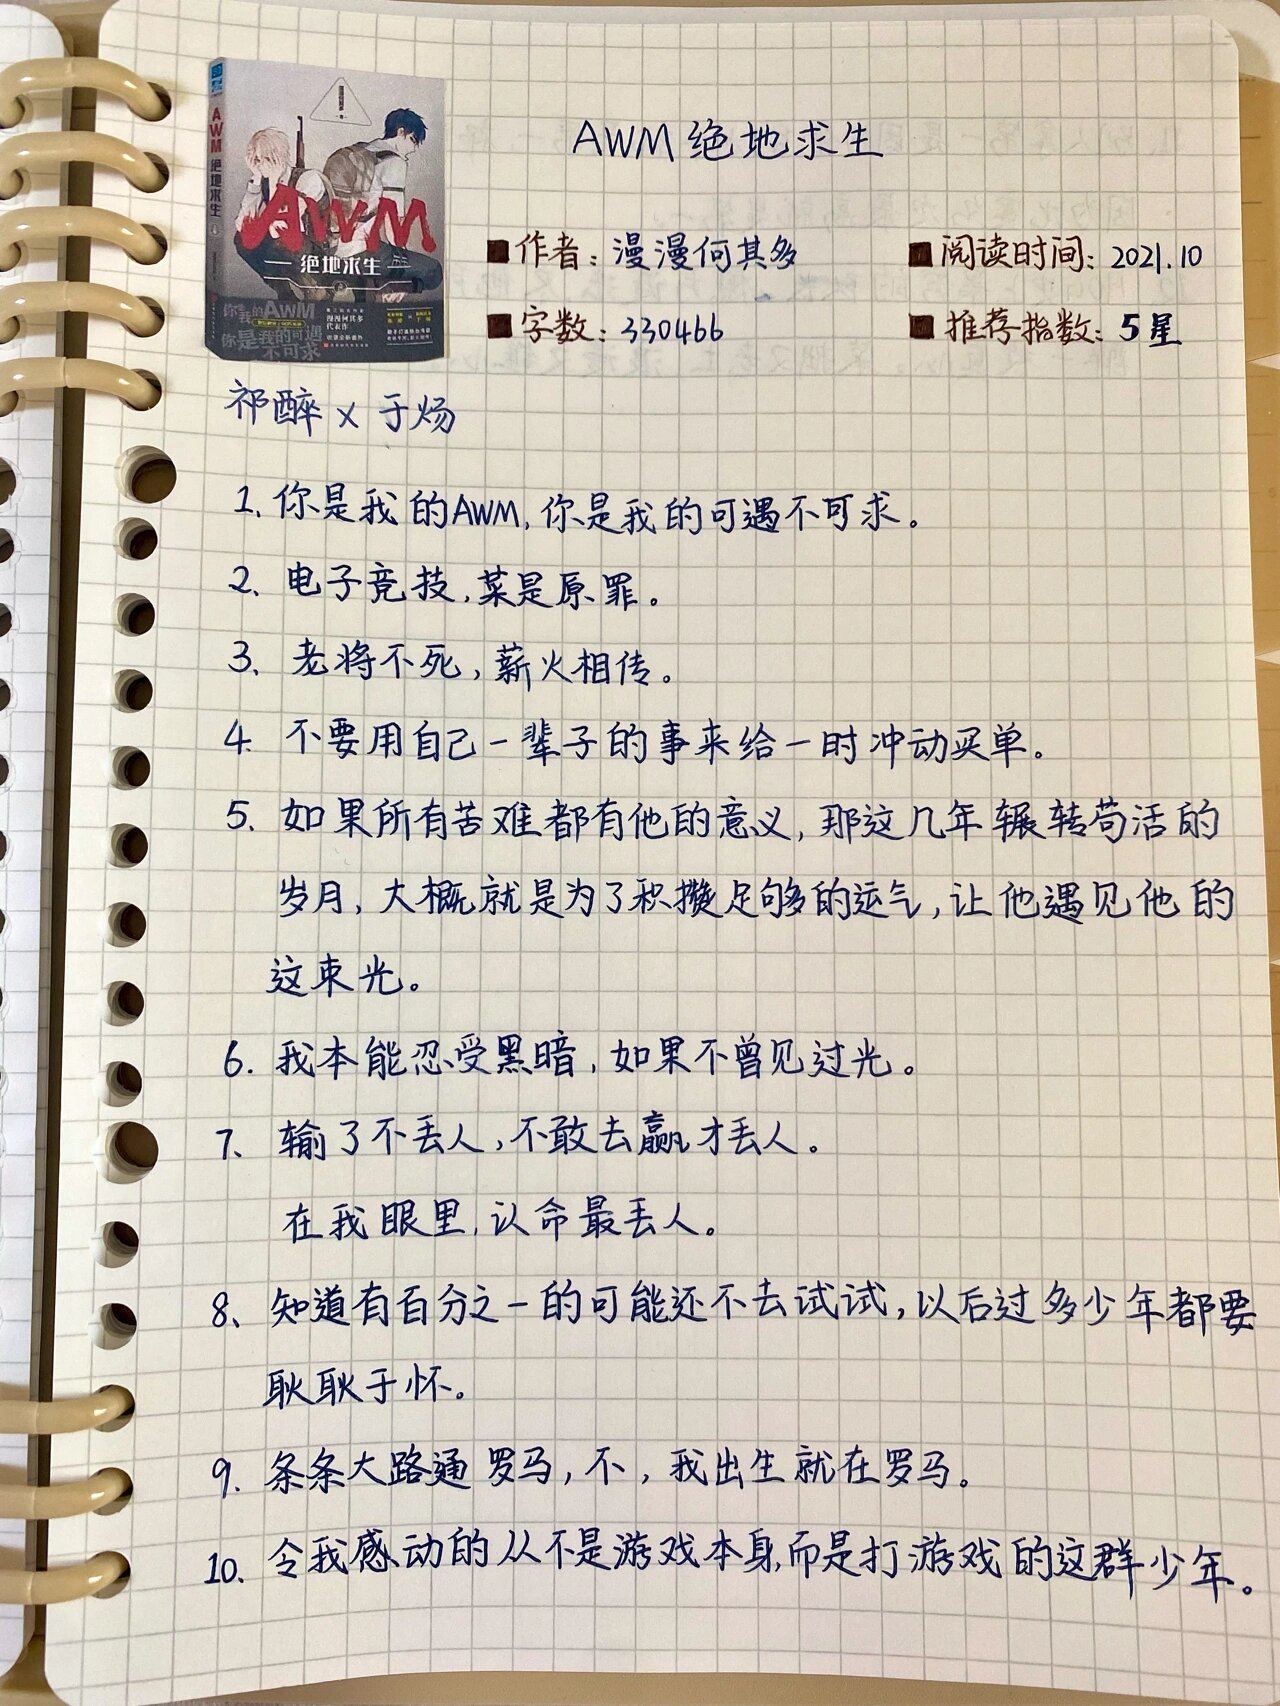 AWM 绝地求生
AWM
绝地求生
AWM
绝地求生
你是我的AWM
你是我的可遇
不可求
漫漫何其多
代表作
■作者：漫漫何其多
■阅读时间：2021.10
■字数：330466
■推荐指数：5星
祁醉 x 于炀
1、你是我的AWM，你是我的可遇不可求。
2、电子竞技，菜是原罪。
3、老将不死，薪火相传。
4、不要用自己一辈子的事来给一时冲动买单。
5、如果所有苦难都有他的意义，那这几年辗转苟活的
岁月，大概就是为了积攒足够的运气，让他遇见他的
这束光。
6、我本能忍受黑暗，如果不曾见过光。
7、输了不丢人，不敢去赢才丢人。
在我眼里，认命最丢人。
8、知道有百分之一的可能还不去试试，以后过多少年都要
耿耿于怀。
9、条条大路通罗马，不，我出生就在罗马。
10、令我感动的从不是游戏本身，而是打游戏的这群少年。